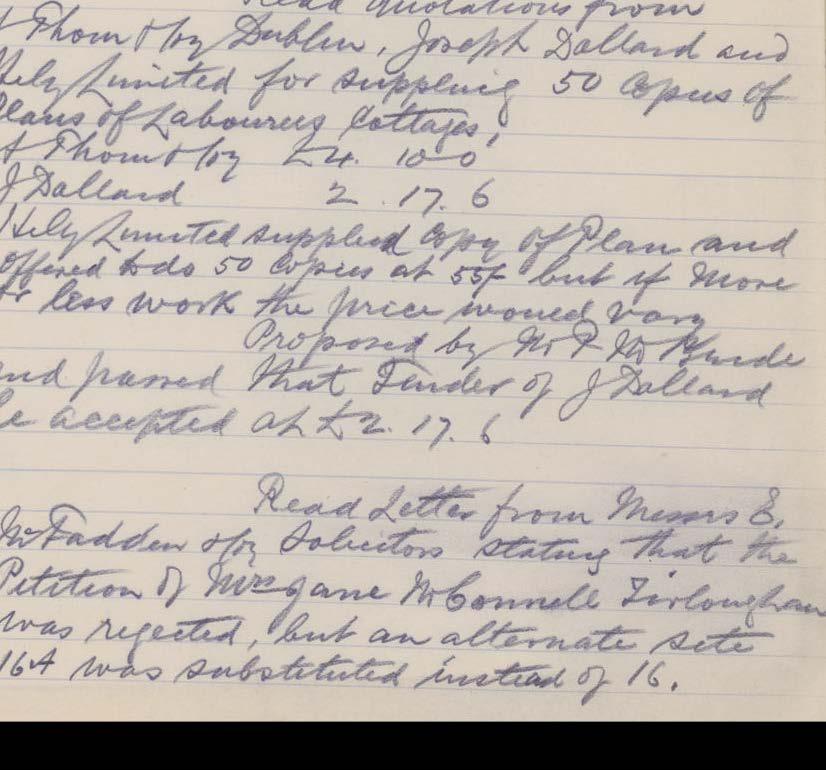 Read Quotations from
A Thom & Coy Dublin, Joseph Dollard and
Hely Limited for suppling 50 Copies of
Plans of Labourers Cottages,
A Thom & Coy £4. 10-0
J Dollard 2. 17. 6
Hely Limited supplied Copy of Plan and
offered to do 50 Copies at 55/- but if more
or less work the price would vary
Proposed by Mr P
and passed that Tender of J Dollard
be accepted at £2. 17. 6
Read Letter from Messrs E.
McFadden & Coy Solicitors stating that the
Petition of Mrs Jane McConnell Tirloughan
was rejected, but an alternate site
16A was substituted instead of 16.